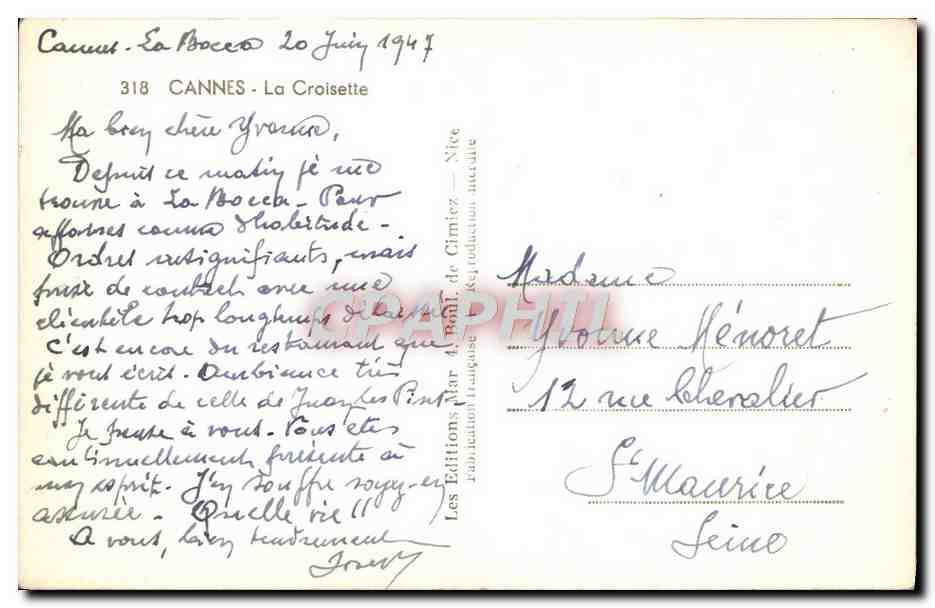 Cannes - La Bocca 20 Juin 1947
318 CANNES - La Croisette
Ma bien chère Yvonne,
Depuis ce matin je me
trouve à La Bocca - Pour
affaires comme d'habitude -
Ordres insignifiants, mais
prise de contact avec une
clientèle trop longtemps délaissée -
C'est encore du restaurant que
je vous écris - Ambiance très
différente de celle de Juan les Pins -
Je pense à vous - Vous êtes
continuellement présente à
mon esprit - J'en souffre soyez-en
assurée - Quelle vie !!
A vous, bien tendrement
Joseph
Les Editions Mar 4, Boul. de Cimiez — Nice
Fabrication française - Reproduction interdite
CPAPHIL
Madame
Yvonne Ménoret
12 rue Chevalier
St Maurice
Seine